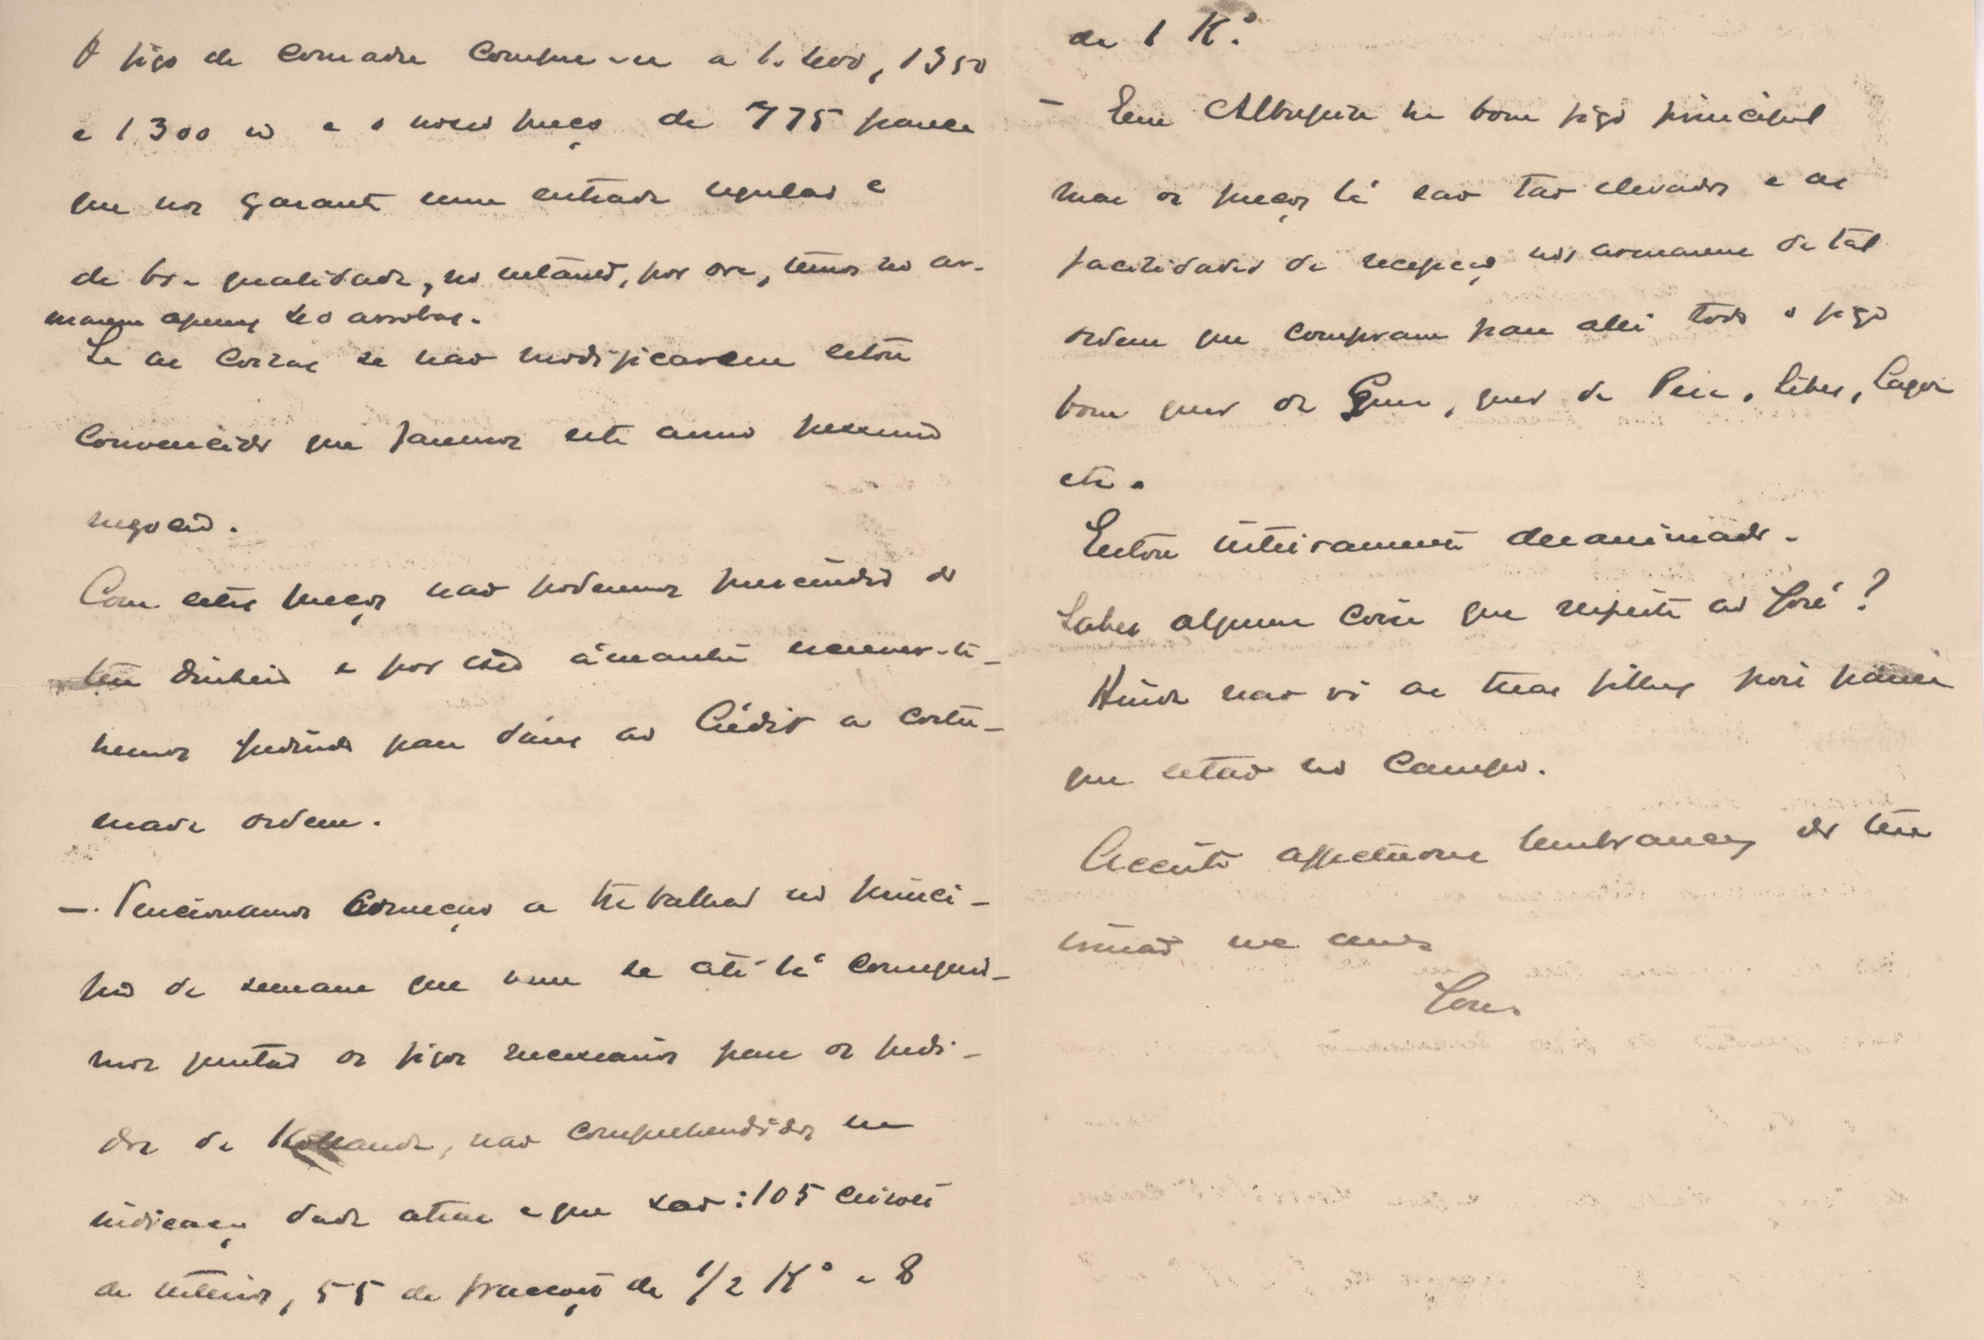 O figo de comadre compra-se a 1.400, 1350
e 1300 rs e o nosso preço de 775 parece
que nos garante uma entrada regular e
de boa qualidade, no entanto, por ora, temos no ar-
mazem apenas 400 arrobas.
Se as coisas se não modificarem estou
convencido que faremos este anno pessimo
negocio.
Com estes preços não podemos prescindir de
ter dinheiro e por isso ámanhã escrever-te-
hemos pedindo para dares ao Crédit a costu-
mada ordem.
- Tencionamos começar a trabalhar no princi-
pio da semana que vem se até lá conseguir-
mos juntar os figos necessarios para os pedi-
dos da Hollanda, não comprehendidos na
indicação dada atraz e que são: 105 ceiroes
de inteiros, 55 de fracções de 1/2 Kº e 8
de 1 Kº.
- Em Albufeira ha bom figo principal
mas os preços lá são tão elevados e as
facilidades de recepção nos armazens de tal
ordem que compram para alli todo o figo
bom quer de Guia, quer de Pera, Silves, Lagoa
etc.
Estou inteiramente desanimado.
Sabes alguma coisa que respeite ao José?
Ainda não vi as tuas filhas pois parece
que estão no campo.
Acceita affectuosas lembranças do teu
irmão m.to am.o
José